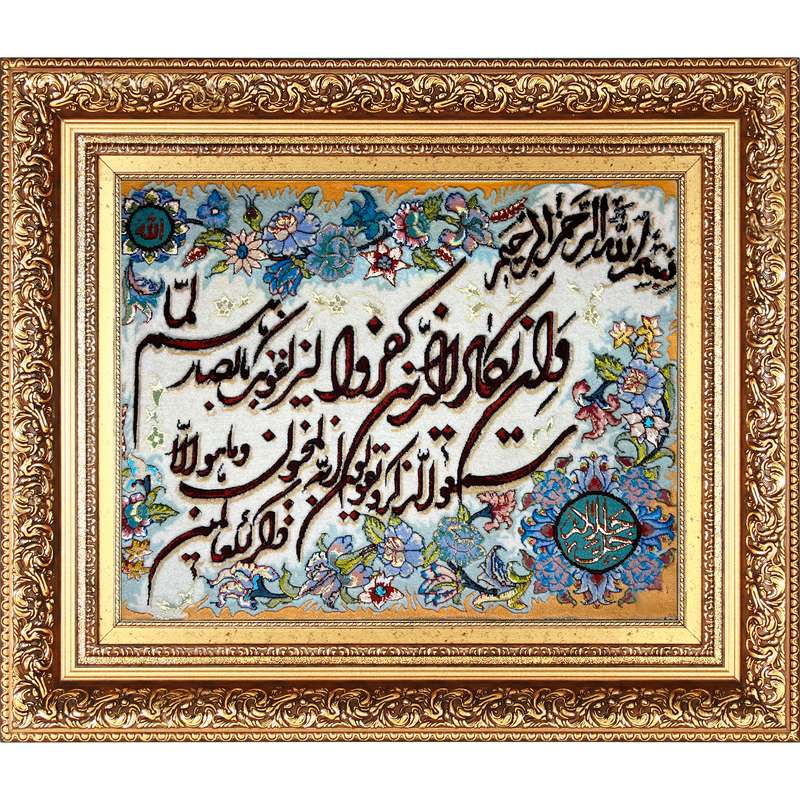 بسم الله الرحمن الرحیم
الله
وان یکاد الذین کفروا لیزلقونک بابصار
هم لما
سمعوا الذکر و یقولون انه لمجنون وماهو الا
ذکر للعالمین
جل جلاله